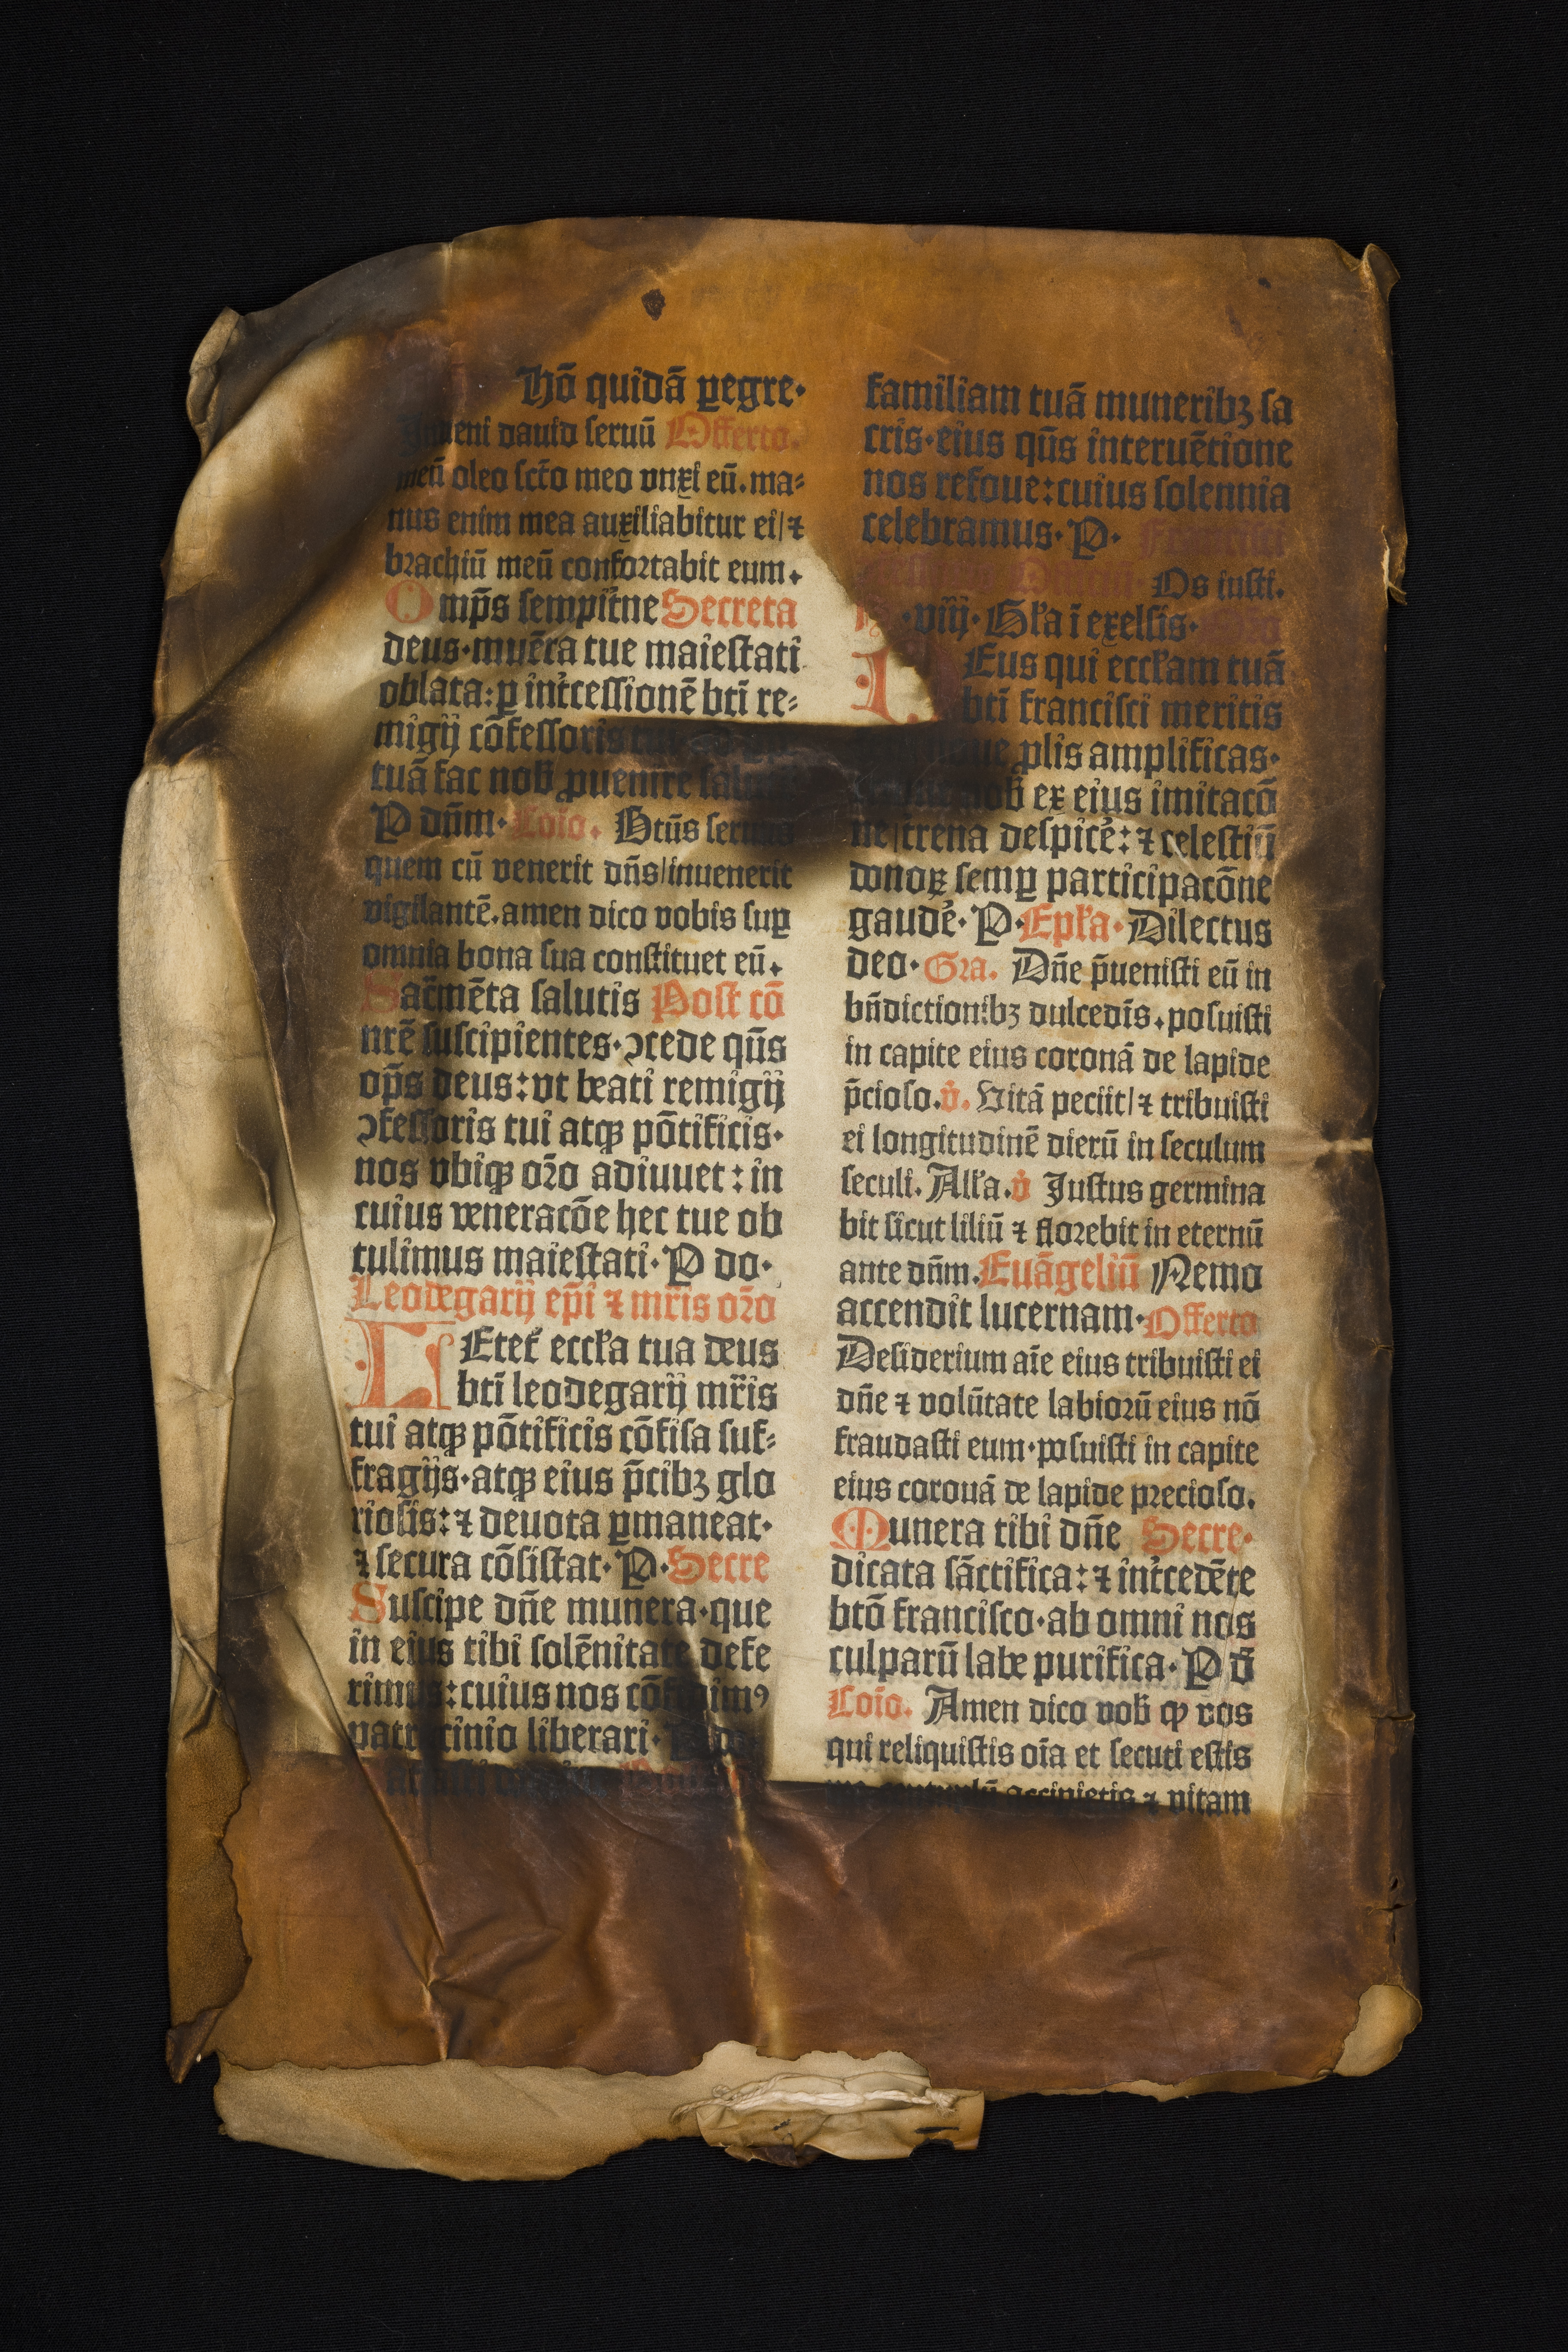 Hō quidā ꝑegre·
dauid seruū Offerto.
meū oleo sctō meo vnxi eū. ma⸗
nus enim mea auxiliabitur ei/ ⁊
brachiū meū confortabit eum.
Omp̄s sempit̾ne Secreta
deus· mun̄era tue maiestati
oblata: ꝑ int̾cessionē bti̅ re⸗
migij cōfessoris
tuā fac nob̅ ꝓuenire
P dn̄m· Cōio. Btūs
quem cū venerit dn̄s/ inuenerit
vigilantē. amen dico vobis suꝑ
omnia bona sua constituet eū.
Sac̄mēta salutis Post cō
nrē suscipientes· ꝯcede qūs
op̄s deus: vt beati remigij
ꝯfessoris tui atqꝫ pōtificis·
nos vbiqꝫ orō adiuuet: in
cuius veneracōe hec tue ob
tulimus maiestati· P do·
Leodegarij ep̄i ⁊ mr̄is orō
LEtet̾ eccl̾a tua deus
bti̅ leodegarij mr̄is
tui atqꝫ pōtificis cōfisa suf⸗
fragijs· atqꝫ eius p̄cibꝫ glo
riosis: ⁊ deuota ꝑmaneat·
⁊ secura cōsistat· P· Secre
Suscipe dn̄e munera· que
in eius tibi solēnitate defe
rimus: cuius nos
patrocinio liberari·
familiam tuā muneribꝫ sa
cris· eius qūs interuētione
nos refoue: cuius solennia
celebramus· P· Francisci
Os iusti.
·viij· Gl̾a ī exelsis·
DEus qui eccl̾am tuā
bti̅ francisci meritis
ꝓlis amplificas·
nob̅ ex eius imitacō
ne/ t̾rena despice̾: ⁊ celestiū
donoꝝ semꝑ participacōne
gaude̾· P· Epl̾a· Dilectus
deo· Gra. Dn̄e p̄uenisti eū in
bn̄dictionibꝫ dulcedīs. posuisti
in capite eius coronā de lapide
p̄cioso. v̾. Vitā peciit/ ⁊ tribuisti
ei longitudinē dierū in seculum
seculi. All̾a. v̾ Justus germina
bit sicut liliū ⁊ florebit in eternū
ante dn̄m. Euāgeliū Nemo
accendit lucernam· Offerto
Desiderium aīe eius tribuisti ei
dn̄e ⁊ volūtate labiorū eius nō
fraudasti eum· posuisti in capite
eius coronā de lapide precioso.
Munera tibi dn̄e Secre·
dicata sāctifica: ⁊ int̾cedēte
btō francisco· ab omni nos
culparū labe purifica· P d̄
Cōio. Amen dico vob̅ ꝙ vos
qui reliquistis oīa et secuti estis
accipietis ⁊ vitam